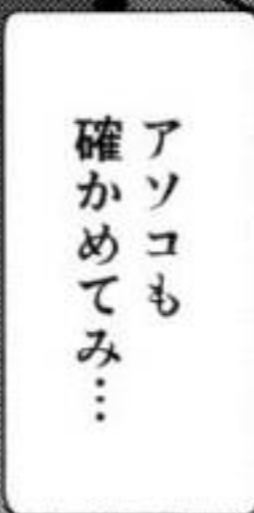 アソコも
確かめてみ…